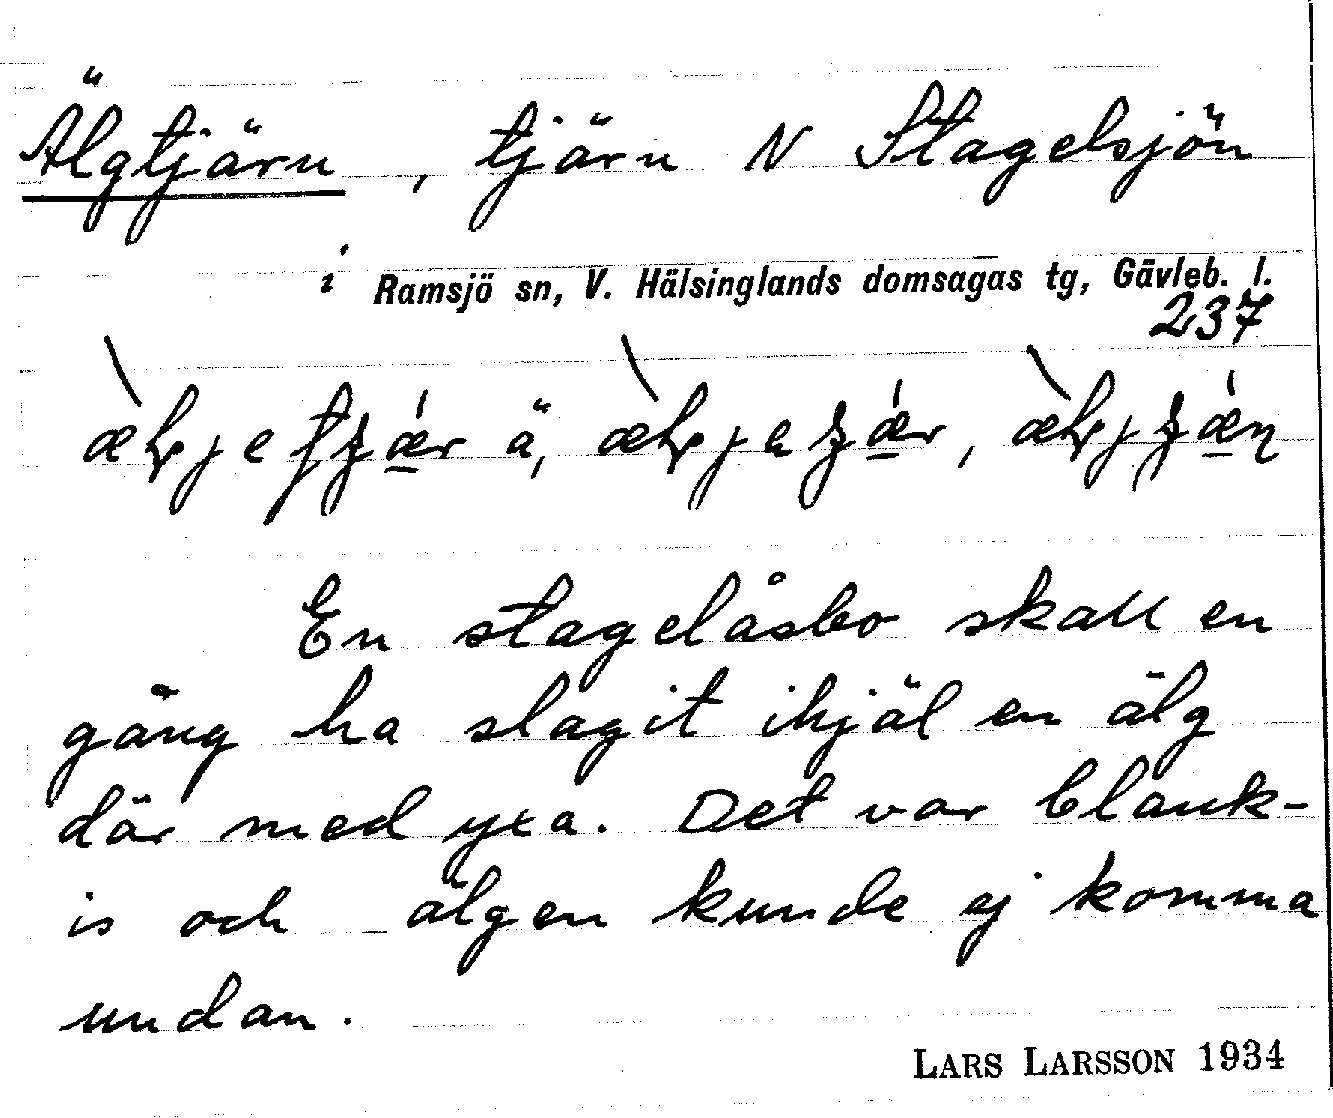 Älgtjärn, tjärn N Stagelsjön
i Ramsjö sn, V. Hälsinglands domsagas tg, Gävleb. l.
237
En stagelåsbo skall en
gång ha slagit ihjäl en älg
där med yxa. Det var blank-
is och älgen kunde ej komma
undan.
LARS LARSSON 1934